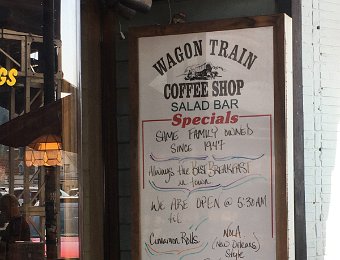 WAGON TRAIN
COFFEE SHOP
SALAD BAR
Specials
SAME FAMILY OWNED
SINCE 1947
Always the Best BREAKFAST
in town
WE ARE OPEN @ 5:30AM
Cinnamon Rolls
NOLA
(New Orleans)
Style
GS